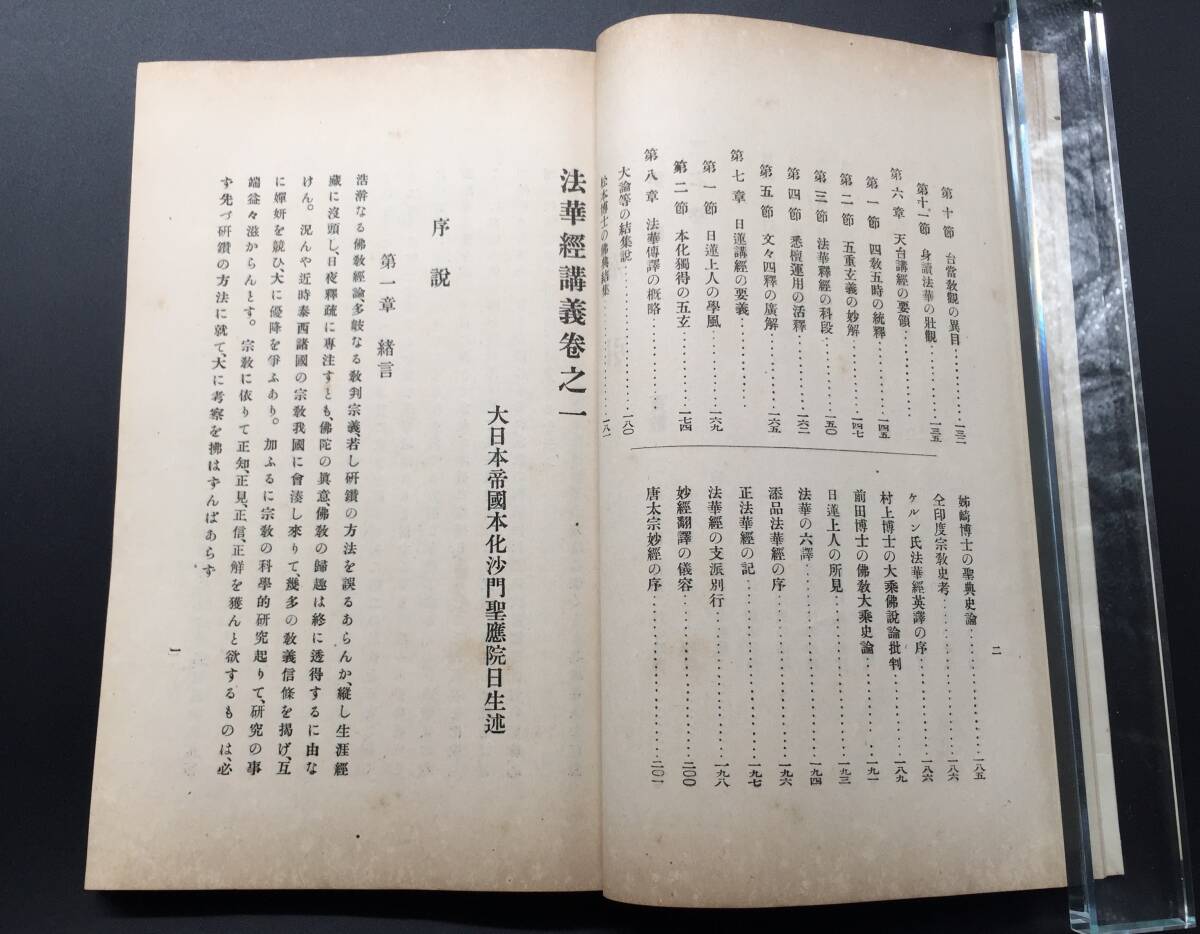 第十節 台當敎觀の異目……………一三二
第十一節 身讀法華の壯觀……………一三五
第六章 天台講經の要領
第一節 四敎五時の統釋……………一四五
第二節 五重玄義の妙解……………一四七
第三節 法華釋經の科段……………一五〇
第四節 悉檀運用の活釋……………一六二
第五節 文々四釋の廣解……………一六五
第七章 日蓮講經の要義……………
第一節 日蓮上人の學風……………一六九
第二節 本化獨得の五玄……………一七四
第八章 法華傳譯の概略……………
大論等の結集說……………一八〇
松本博士の佛典結集……………一八一
姊崎博士の聖典史論……………一八五
仝印度宗敎史考……………一八六
ケルン氏法華經英譯の序……………一八六
村上博士の大乘佛說論批判……………一八九
前田博士の佛敎大乘史論……………一九一
日蓮上人の所見……………一九三
法華の六譯……………一九四
添品法華經の序……………一九六
正法華經の記……………一九七
法華經の支派別行……………一九八
妙經翻譯の儀容……………二〇〇
唐太宗妙經の序……………二〇一
二
法華經講義卷之一
大日本帝國本化沙門聖應院日生述
序說
第一章 緖言
浩澣なる佛敎經論、多岐なる敎判宗義、若し硏鑽の方法を誤るあらんか、縱し生涯經
藏に沒頭し、日夜釋疏に專注すとも、佛陀の眞意、佛敎の歸趣は終に透得するに由な
けん。況んや近時泰西諸國の宗敎我國に會湊し來りて、幾多の敎義信條を揭げ、互
に嬋姸を競ひ、大に優降を爭ふあり。加ふるに宗敎の科學的硏究起りて、硏究の事
端益々滋からんとす。宗敎に依りて正知、正見、正信、正解を獲んと欲するものは、必
す先づ硏鑽の方法に就て、大に考察を拂はずんばあらす
一